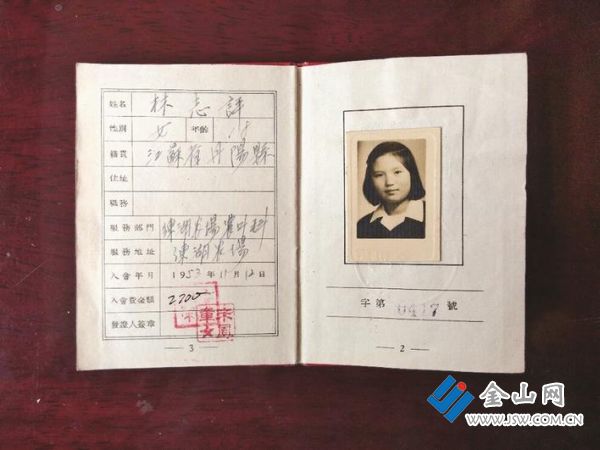 姓名 林志
性別 女 年齡 18
籍貫 江蘇省丹陽縣
住址
職務
服務部門 練湖农場農叶科
服務地址 練湖农場
入會年月 1953年11月12日
入會費金額 2700
發證人簽章
— 3 —
字第 0477 號
— 2 —
金山网
WWW.JSW.COM.CN